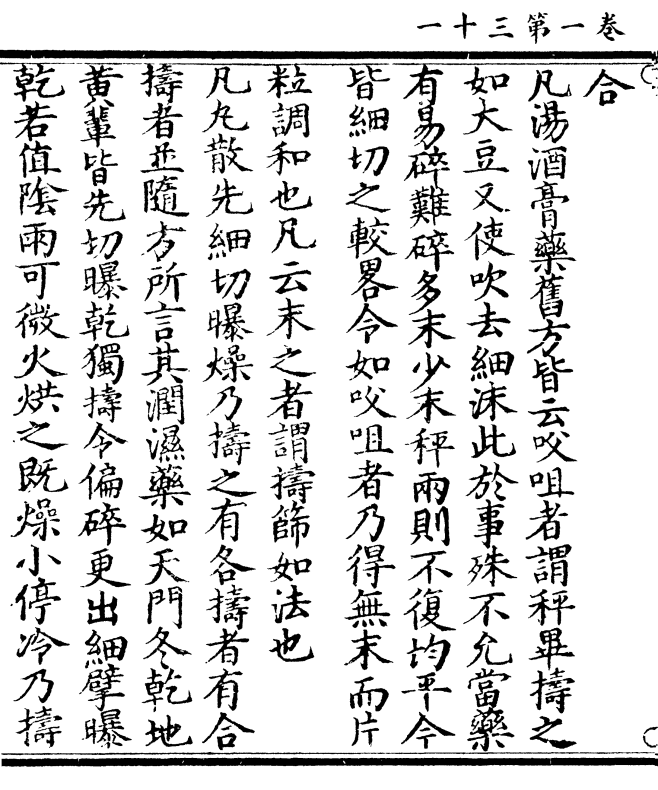 卷一第三十一
合
凡湯酒膏藥舊方皆云㕮咀者謂秤畢擣之
如大豆又使吹去細沫此於事殊不允當藥
有易碎難碎多末少末秤兩則不復均平今
皆細切之較畧令如㕮咀者乃得無末而片
粒調和也凡云末之者謂擣篩如法也
凡丸散先細切曝燥乃擣之有各擣者有合
擣者並隨方所言其潤濕藥如天門冬乾地
黄輩皆先切曝乾獨擣令偏碎更出細擘曝
乾若值陰雨可微火烘之既燥小停冷乃擣